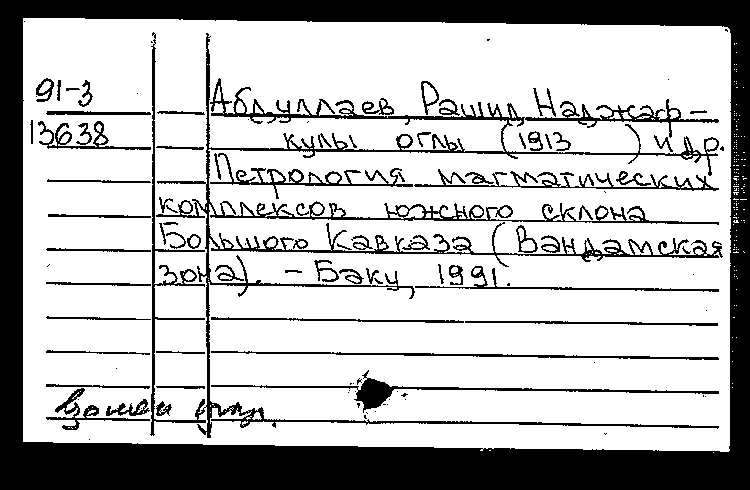 91-3
13638
Абдуллаев, Рашид Наджаф-
кулы оглы (1913 ) и др.
Петрология магматических
комплексов южного склона
Большого Кавказа (Вандамская
зона). - Баку, 1991.